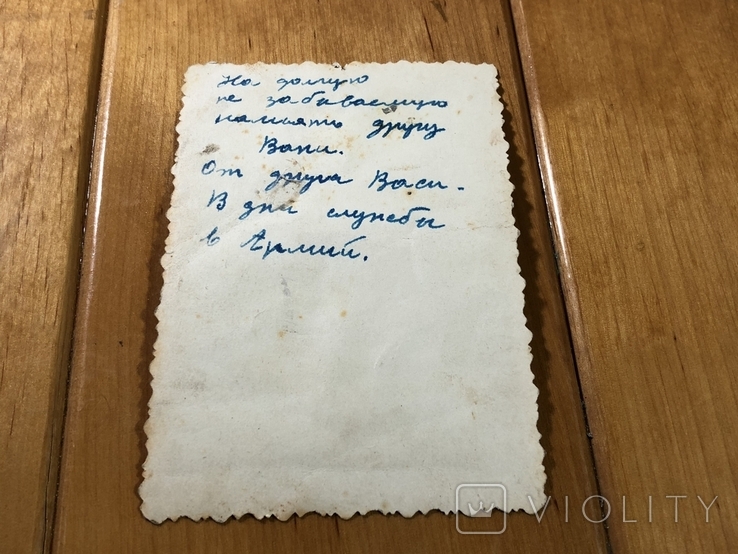 На долгую
не забываемую
память другу
Вани.
От друга Васи.
В дни службы
в Армий.
VIOLITY